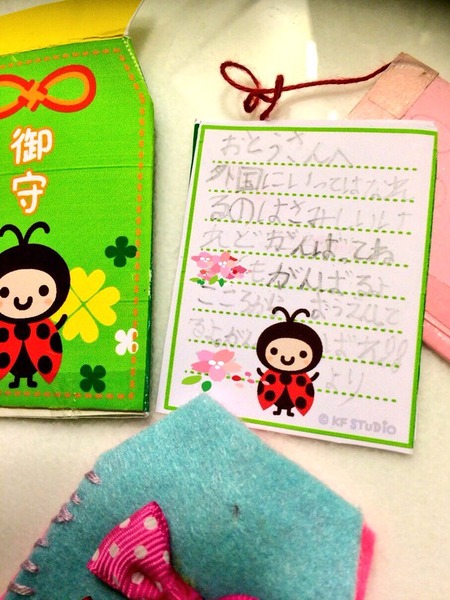 御守
おとうさんへ
外国にいってはなれ
るのはさみしいけ
れどがんばってね
もがんばるよ
こころから おうえんして
るよがんばれ!!
より
© KF STUDIO